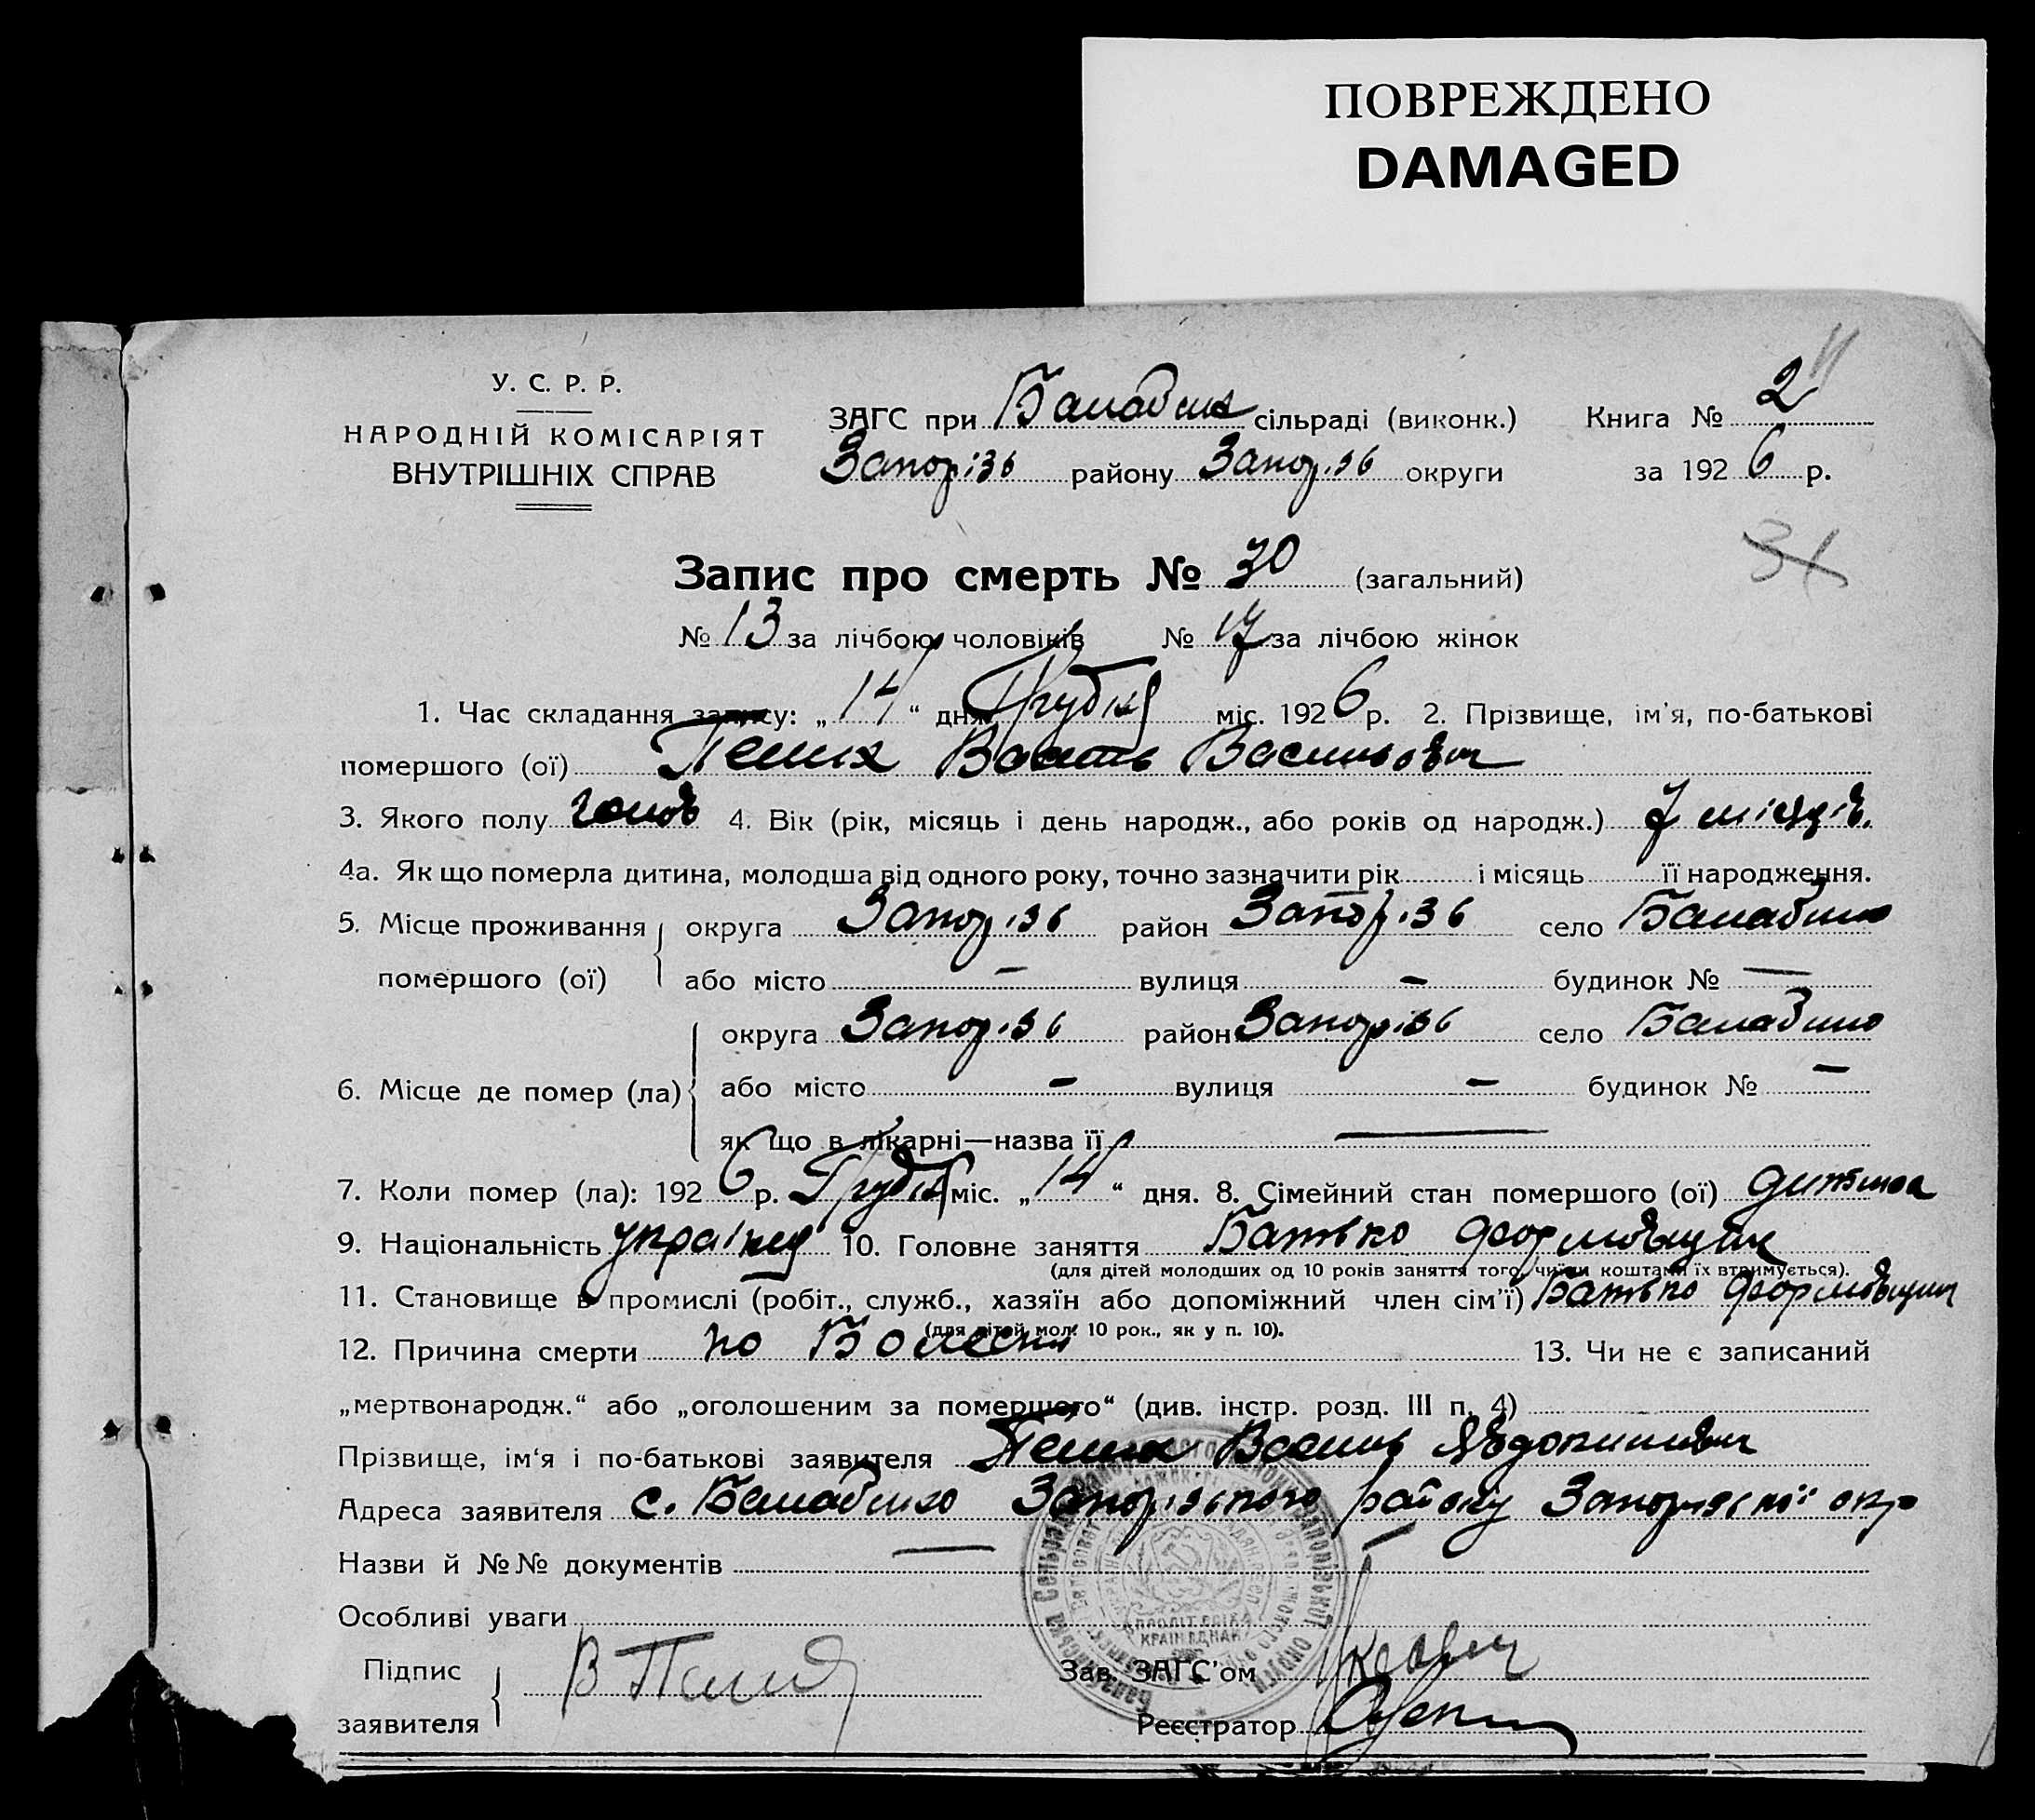 ПОВРЕЖДЕНО
DAMAGED
У. С. Р. Р.
НАРОДНІЙ КОМІСАРІЯТ
ВНУТРІШНІХ СПРАВ
ЗАГС при Балабин сільраді (виконк.) Книга № 2
Запоріз район у Запоріз округи за 1926 р.
31
Запис про смерть № 30 (загальний)
№ 13 за лічбою чоловіків № 17 за лічбою жінок
1. Час складання запису: „14“ дня Грудня міс. 1926 р. 2. Прізвище, ім'я, по-батькові
помершого (ої) Василь Васильович
3. Якого полу чолов 4. Вік (рік, місяць і день народж., або років од народж.) 7 місяців.
4а. Як що померла дитина, молодша від одного року, точно зазначити рік і місяць її народження.
5. Місце проживання округа Запоріз район Запоріз село Балабино
помершого (ої) або місто — вулиця — будинок № —
округа Запоріз район Запоріз село Балабино
6. Місце де помер (ла) або місто — вулиця — будинок № —
як що в лікарні—назва її —
7. Коли помер (ла): 1926 р. Грудня міс. „14“ дня. 8. Сімейний стан помершого (ої) дитина
9. Національність українец 10. Головне заняття Батько формовщик
(для дітей молодших од 10 років заняття того, чиїми коштами їх втримується).
11. Становище в промислі (робіт., служб., хазяїн або допоміжний член сім'ї) Батько формовщик
(для дітей мол. 10 рок., як у п. 10).
12. Причина смерти по Болесни 13. Чи не є записаний
„мертвонародж.“ або „оголошеним за помершого“ (див. інстр. розд. III п. 4)
Прізвище, ім‘я і по-батькові заявителя Василь Явдокимович
Адреса заявителя с. Балабино Запорізького району Запорізької окр
Назви й №№ документів —
Особливі уваги
Підпис Зав. ЗАГС'ом
заявителя Реєстратор